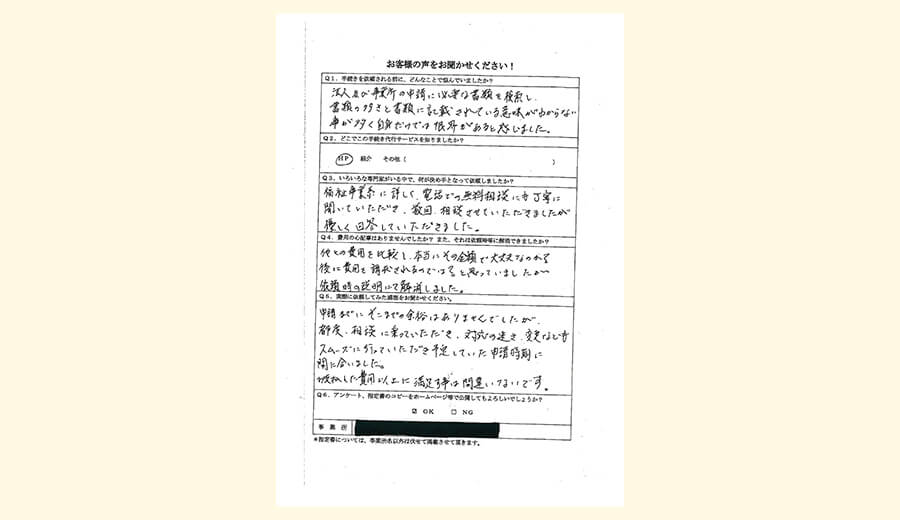 お客様の声をお聞かせください！
Q1．手続きを依頼される前に、どんなことで悩んでいましたか？
法人及び事業所の申請に必要な書類を検索し、
書類の多さと書類に記載されている意味がわからない
事が多く自身だけでは限界があると感じました。
Q2．どこでこの手続き代行サービスを知りましたか？
HP 紹介 その他（ ）
Q3．いろいろな専門家がいる中で、何が決め手となって依頼しましたか？
福祉事業系に詳しく、電話での無料相談にも丁寧に
聞いていただき、数回、相談させていただきましたが
優しく回答していただきました。
Q4．費用の心配事はありませんでしたか？また、それは依頼時等に解消できましたか？
他との費用を比較し、本当にその金額で大丈夫なのか？
後に費用を請求されるのでは？と思っていましたが
依頼時の説明にて解消しました。
Q5．実際に依頼してみた感想をお聞かせください。
申請までにそこまでの余裕はありませんでしたが、
都度、相談に乗っていただき、対応の速さ、変更なども
スムーズに行っていただき予定していた申請時期に
間に合いました。
お支払した費用以上に満足する事は間違いないです。
Q6．アンケート、指定書のコピーをホームページ等で公開してもよろしいでしょうか？
☑ OK □ NG
事業所
＊指定書については、事業所名以外は伏せて掲載させて頂きます。